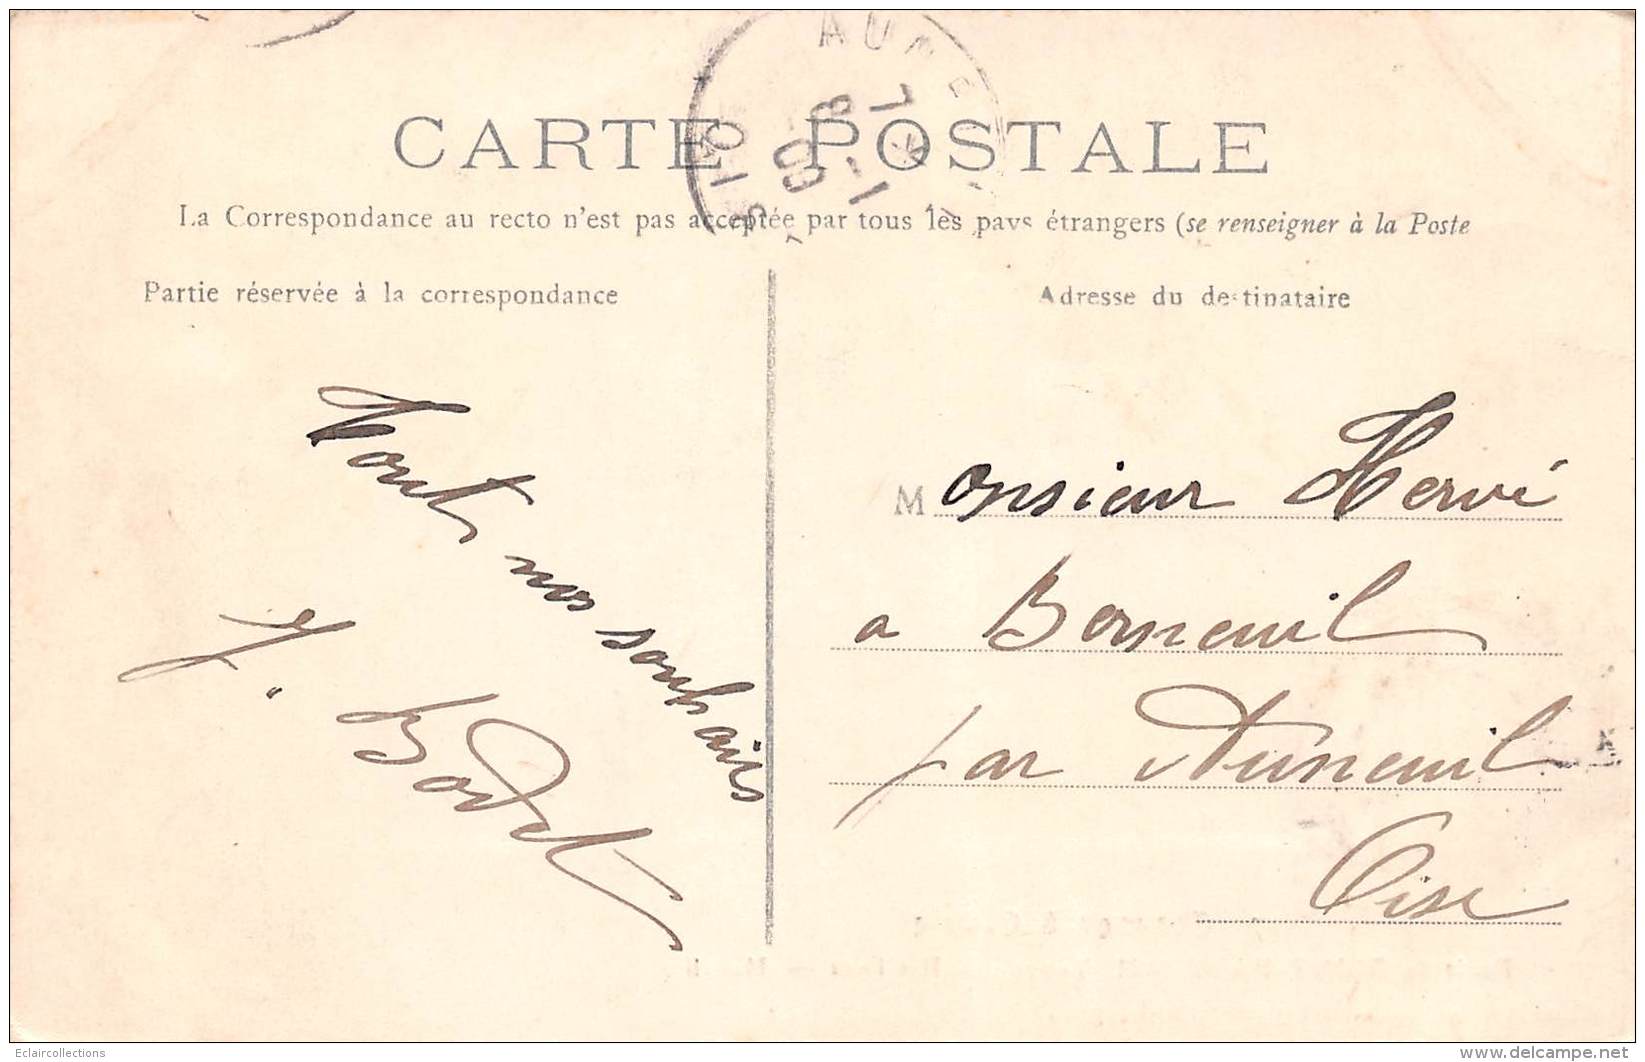 CARTE POSTALE
La Correspondance au recto n'est pas acceptée par tous les pays étrangers (se renseigner à la Poste
Partie réservée à la correspondance
Adresse du destinataire
nos souhaits
Bodet
Monsieur Hervé
a Berneuil
par Auneuil
Oise
Eclaircollections
www.delcampe.net